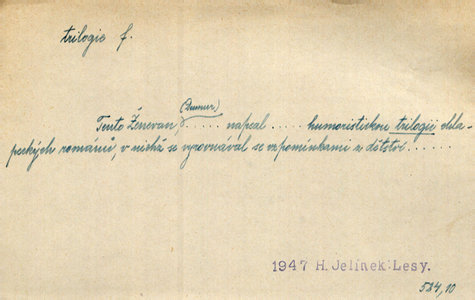 trilogie f.
(Dumur)
Tento Ženevan, ..... napsal ..... humoristickou trilogii chla-
peckých románů, v nichž se vyrovnával se vzpomínkami z dětství ......
1947 H. Jelínek: Lesy.
584,10